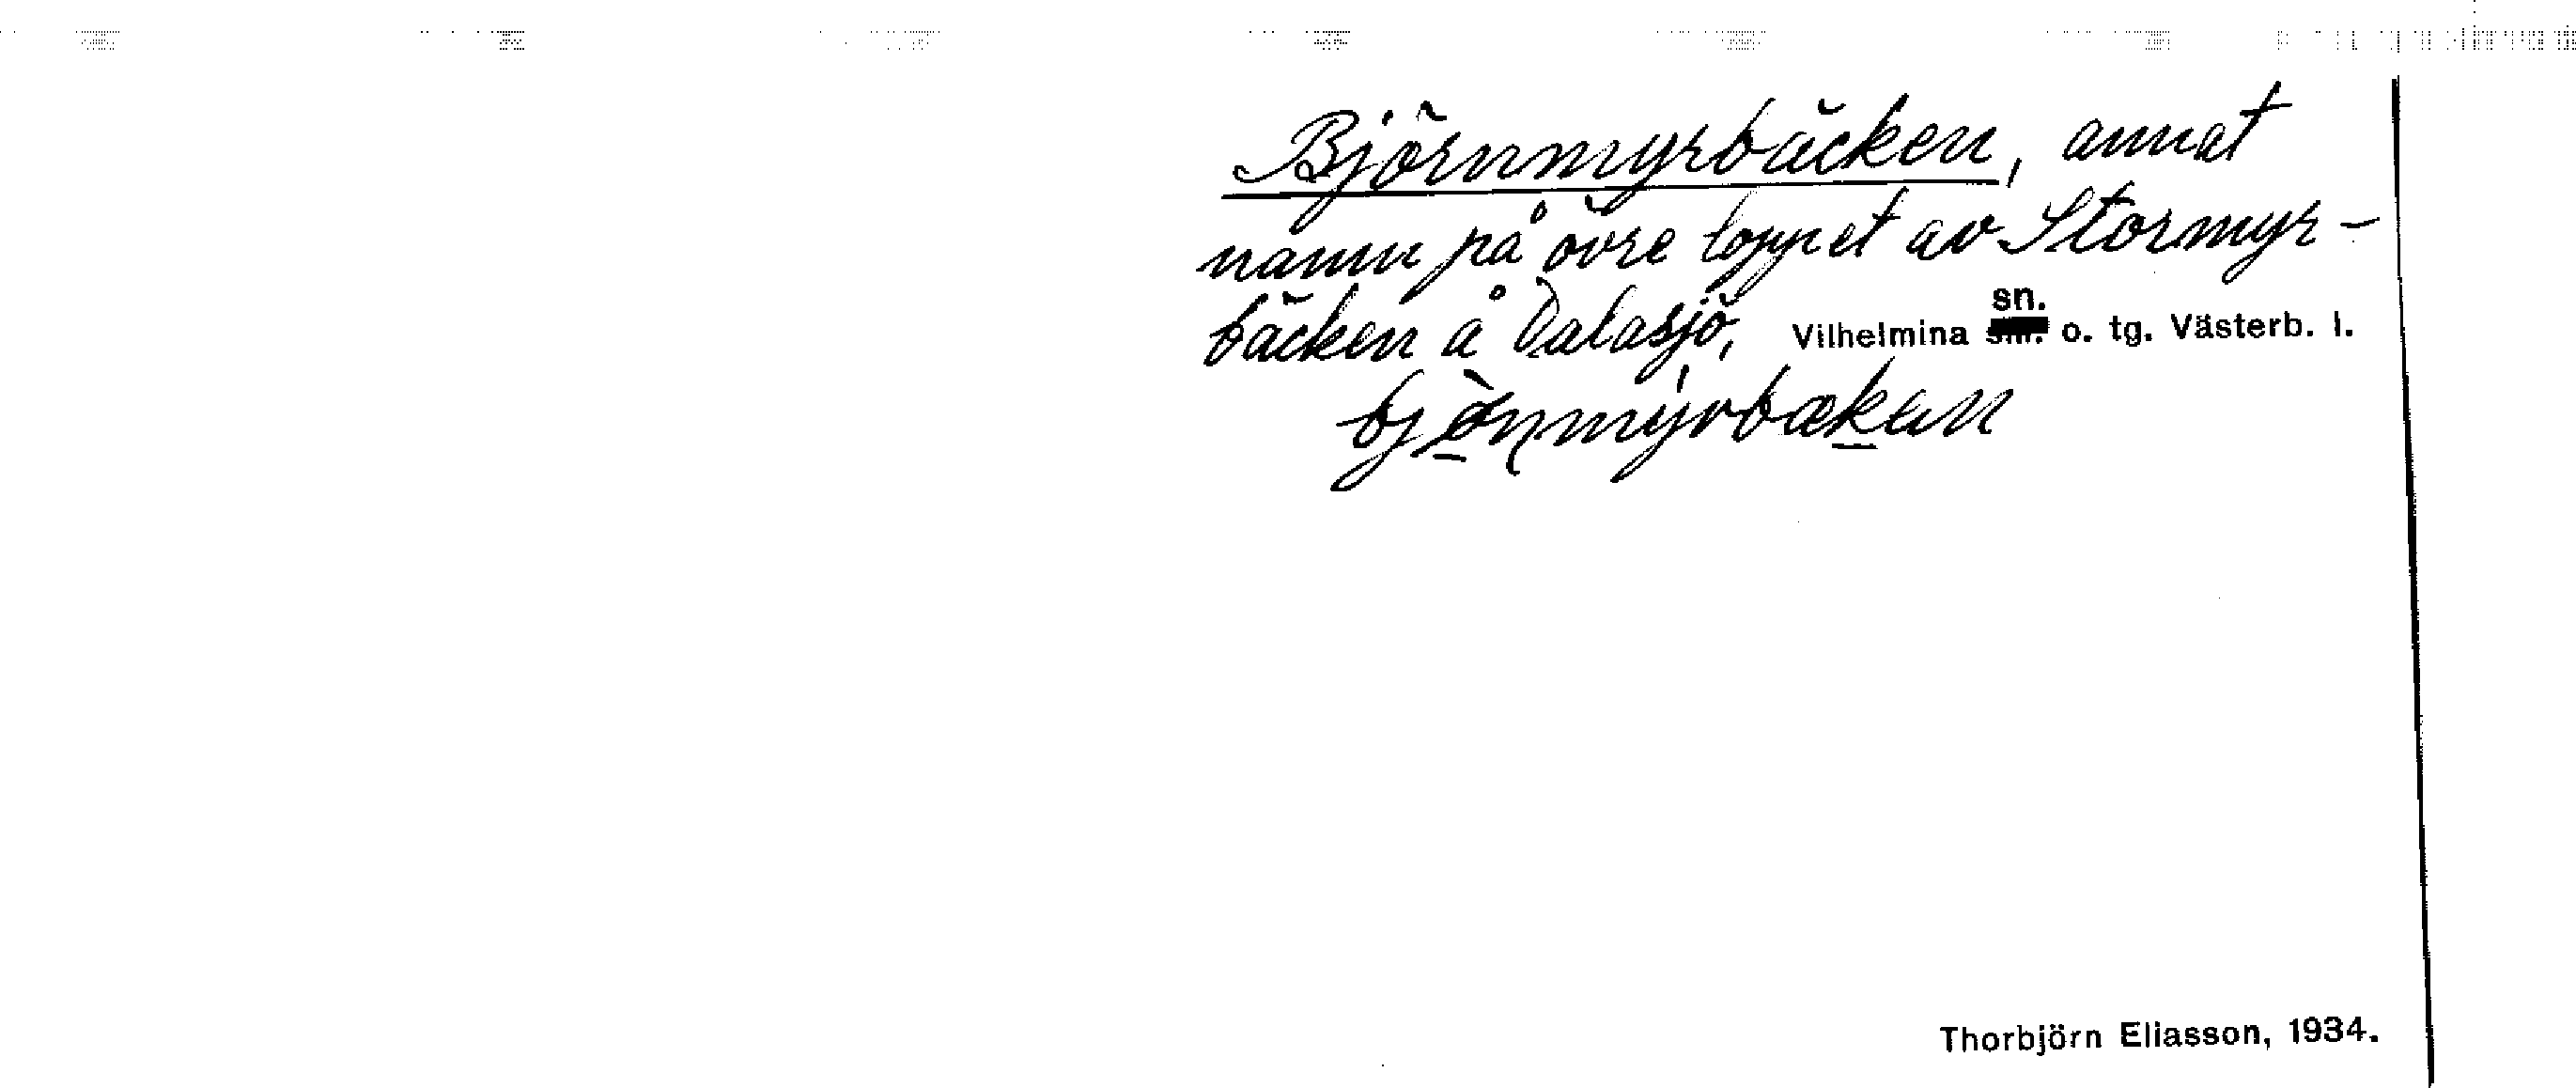 Björnmyrbäcken, annat
namn på övre loppet av Stormyr-
bäcken å Dalasjö, Vilhelmina sn. o. tg. Västerb. l.
bjònmýrbækan
Thorbjörn Eliasson, 1934.